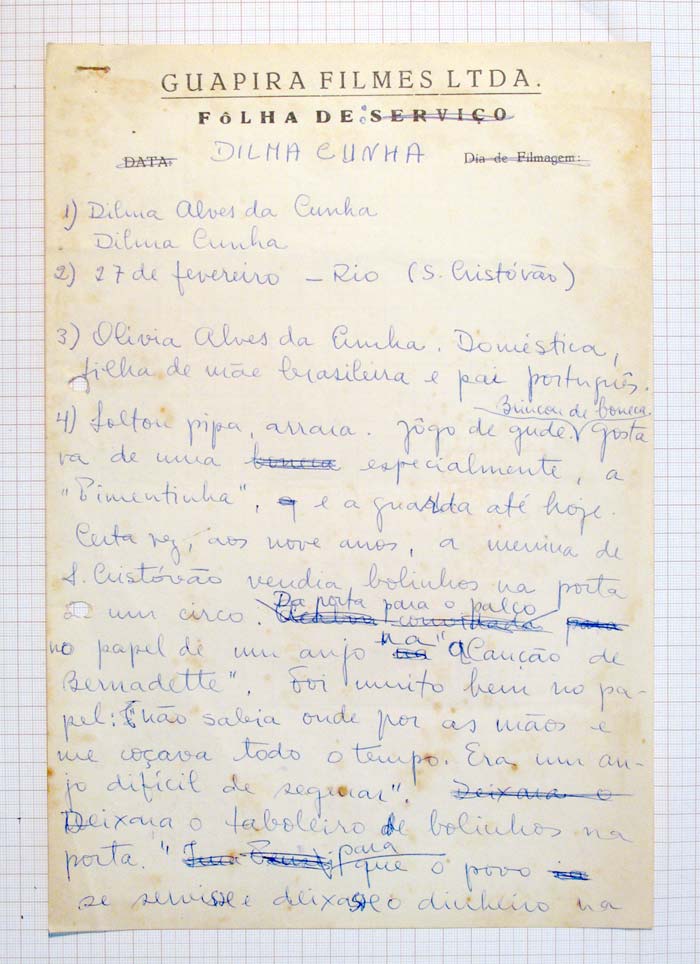 GUAPIRA FILMES LTDA.
FÔLHA DE: SERVIÇO
DATA: DILMA CUNHA Dia de Filmagem:
1) Dilma Alves da Cunha
Dilma Cunha
2) 27 de fevereiro – Rio (S. Cristóvão)
3) Olivia Alves da Cunha. Doméstica,
filha de mãe brasileira e pai português.
Brincou de boneca.
4) Soltou pipa, arraia. Jôgo de gude. Gosta
va de uma boneca especialmente, a
"Pimentinha", e a guarda até hoje.
Certa vez, aos nove anos, a menina de
S. Cristóvão vendia bolinhos na porta
Da porta para o palco
de um circo. convidada para
no papel de um anjo na "A Canção de
Bernadette". Foi muito bem no pa-
pel: "não sabia onde por as mãos e
me coçava todo o tempo. Era um an-
jo difícil de segurar". Deixara o
Deixara o taboleiro de bolinhos na
porta. " para que o povo
se servisse e deixasse o dinheiro na